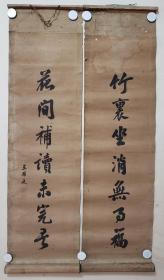 竹裏坐消無事福
花間補讀未完書